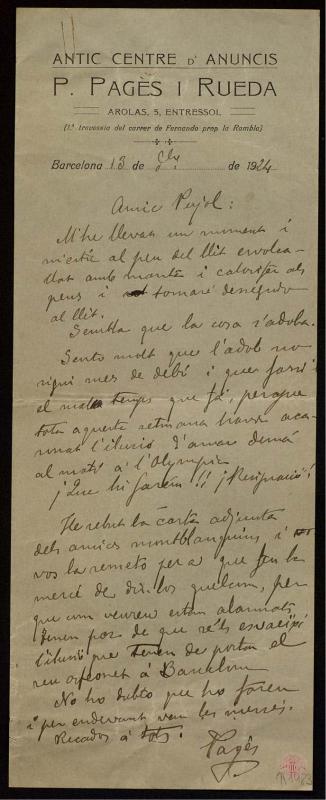 ANTIC CENTRE D'ANUNCIS
P. PAGÈS I RUEDA
AROLAS, 5, ENTRESSOL
(1.ª travessia del carrer de Fernando prop la Rambla)
Barcelona 13 de de 1924
Amic Pujol:
M'he llevat un moment i
m'estic al peu del llit
amb manta i calorifer als
peus i tornaré desseguida
al llit.
Sembla que la cosa s'adoba.
Sento molt que l'adob no
sigui mes de debó i que fassi
el temps que fá, perque
tota aquesta setmana havia
l'ilusió d'anar demá
al matí á l'Olympia
¡Que hi farém!! ¡Resignació!
He rebut la carta adjunta
dels amics montblanquins i
vos la remeto per a que feu la
mercé de dir-los quelcom, per
que com veureu estan alarmats,
tenen por de que se'ls
l'ilusió que tenen de portar el
seu orfeonet á Barcelona
No ho dubto que ho fareu
i per endevant van les mercés.
Recados á tots!
Pagès